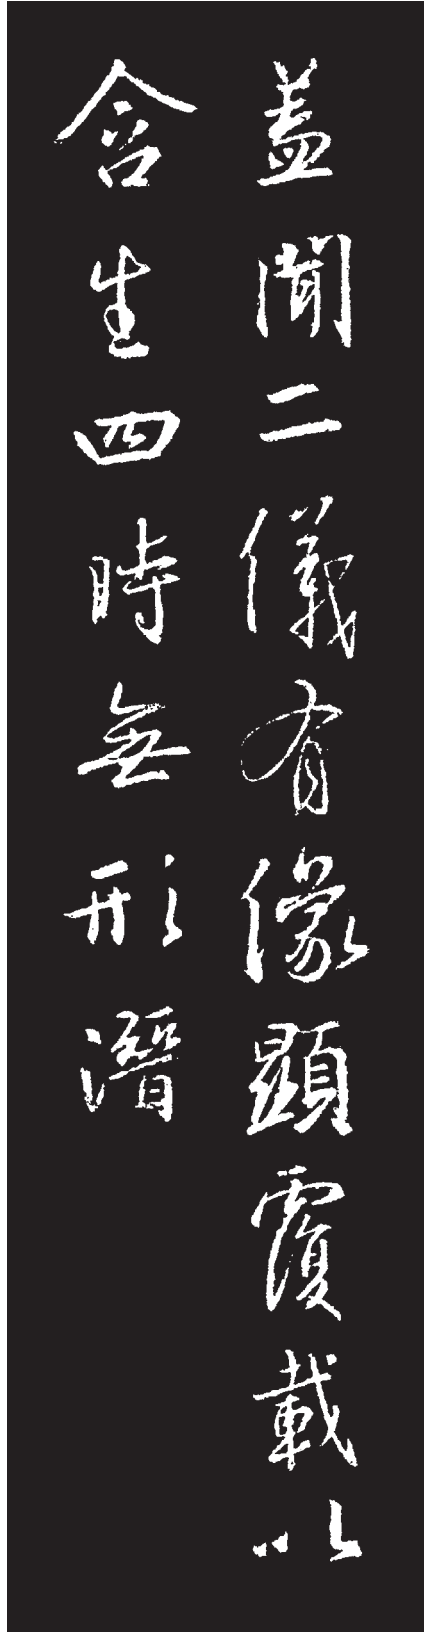 蓋聞二儀有像顯覆載以
含生四時無形潛